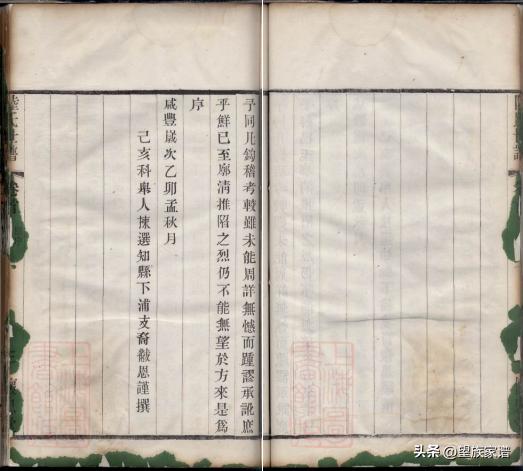 予同几鉤稽考較雖未能周詳無憾而踵謬承訛庶
乎鮮已至廓清推陷之烈仍不能無望於方來是為
序
咸豐歲次乙卯孟秋月
己亥科舉人揀選知縣下浦支裔黻恩謹撰
氏世譜
头条 @望族家谱